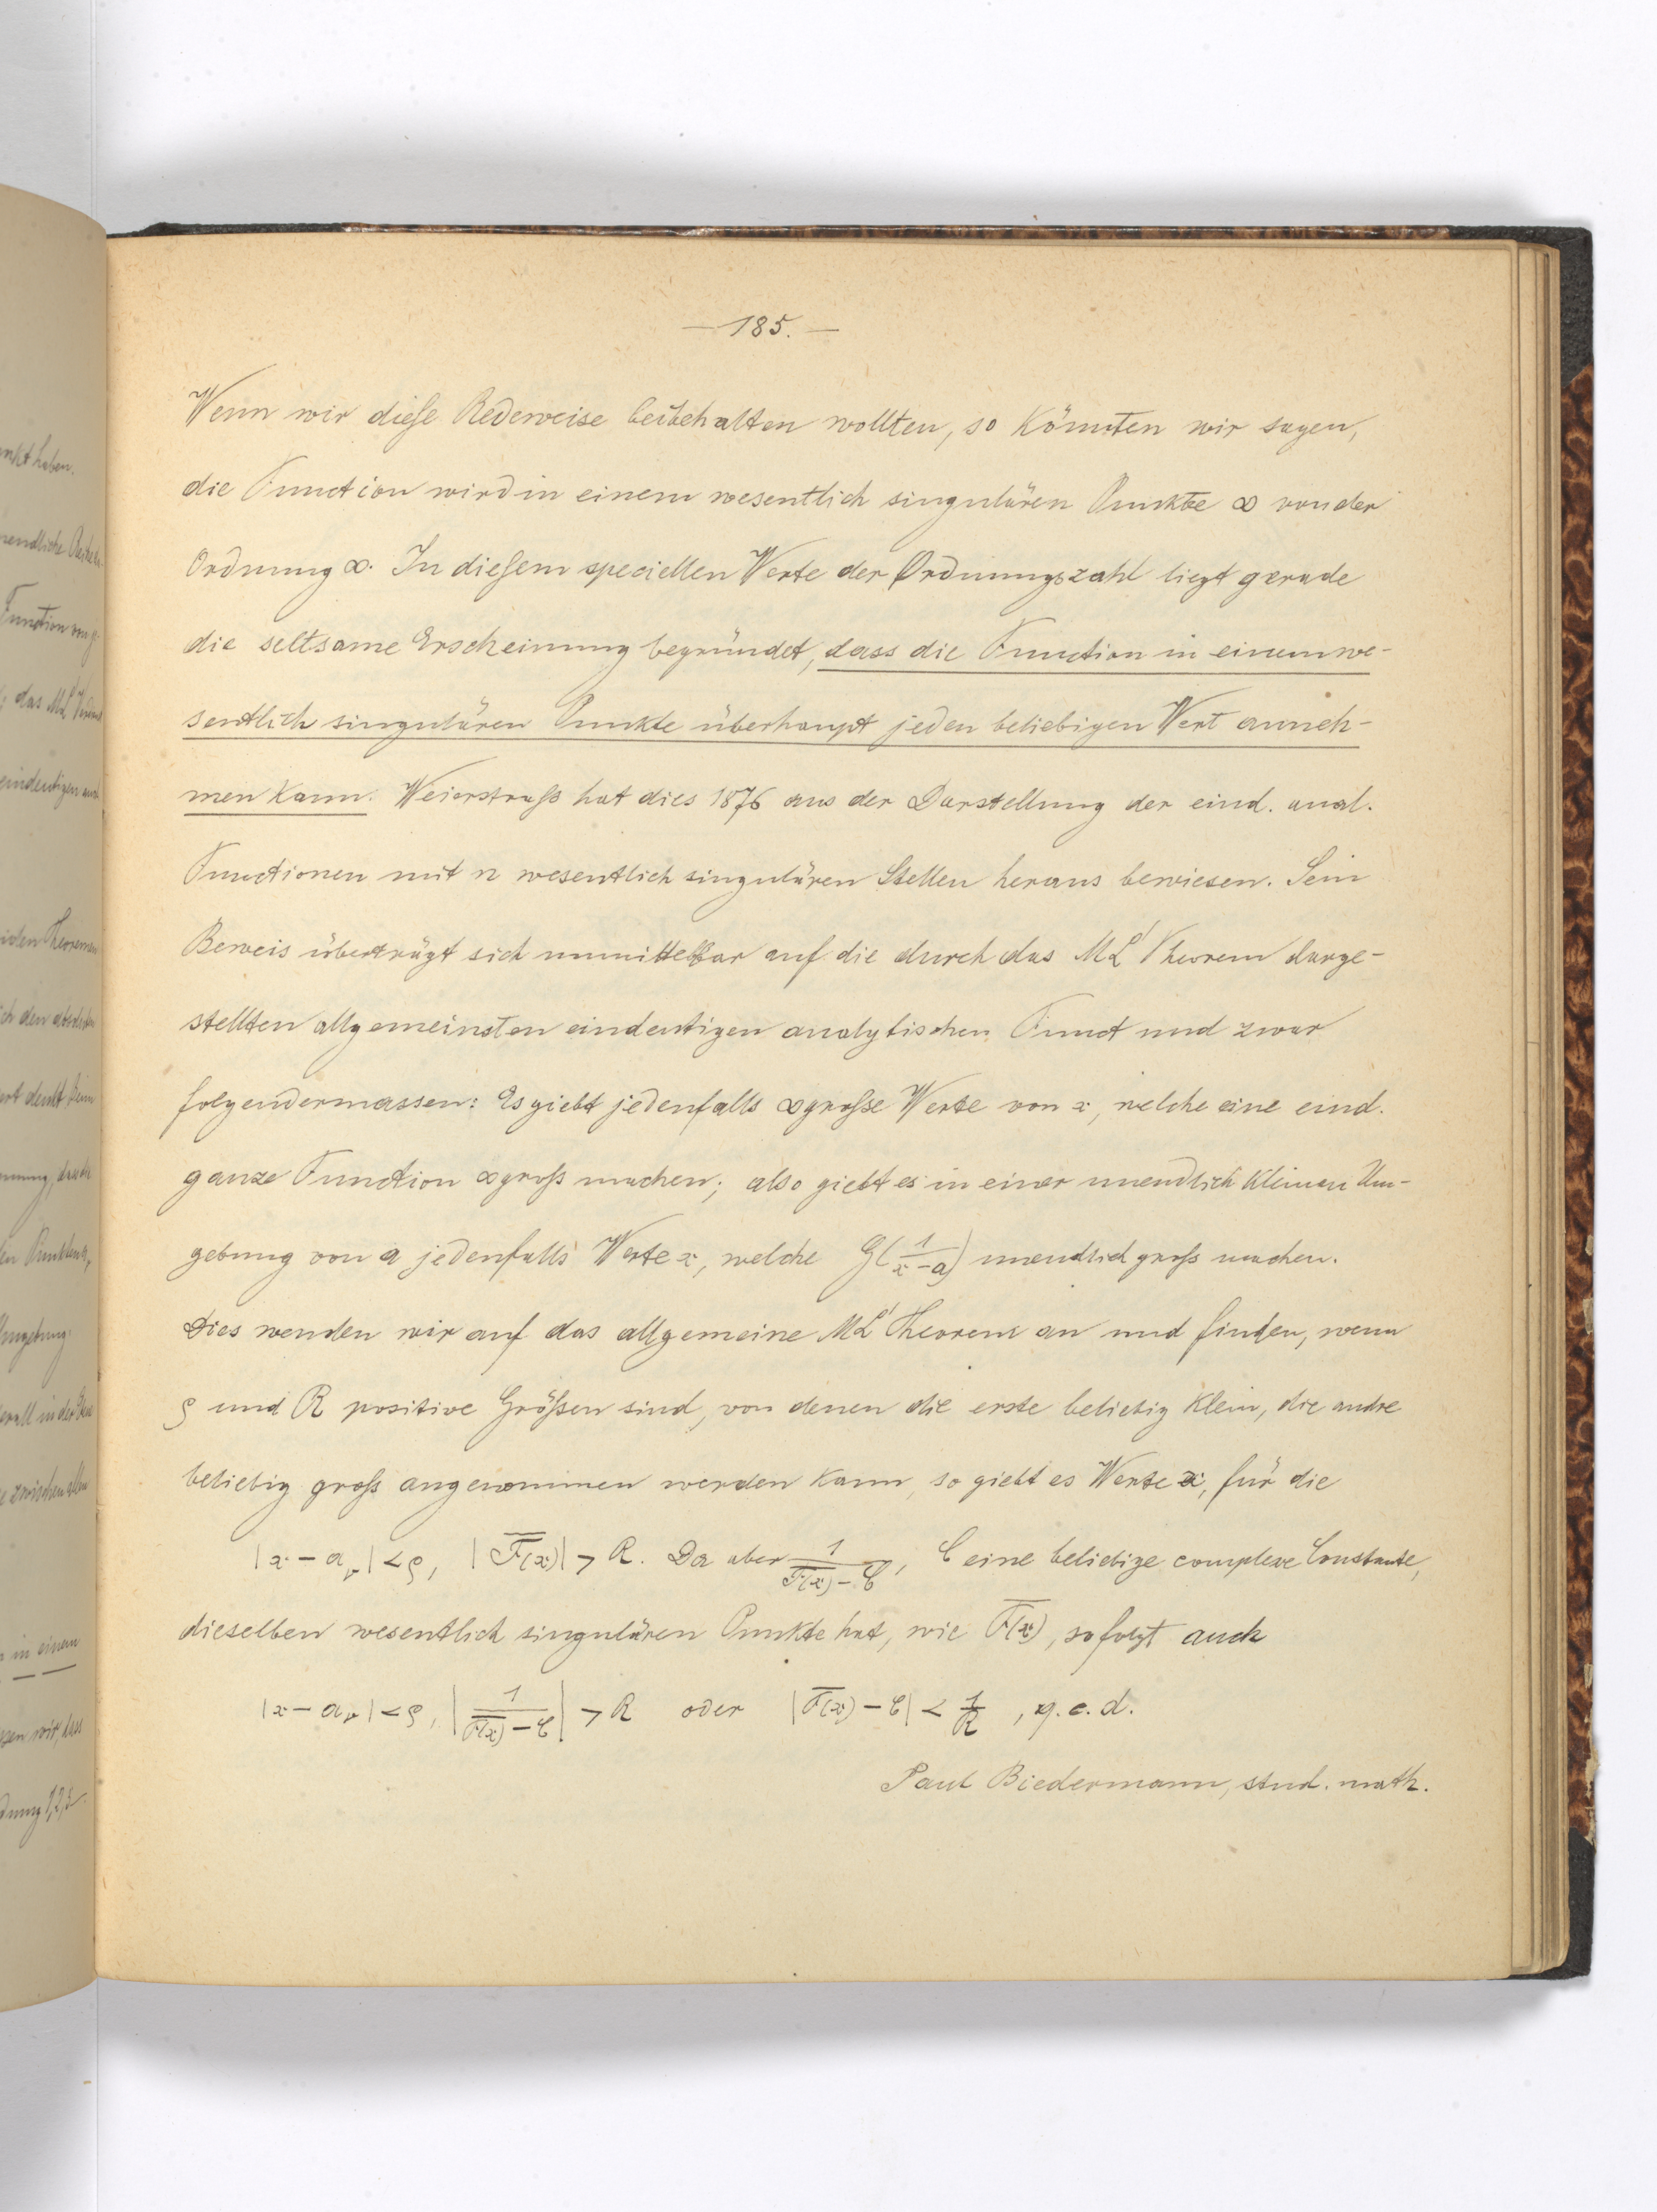 — 185. —
Wenn wir diese Redeweise beibehalten wollten, so könnten wir sagen,
die Function wird in einem wesentlich singulären Punkte ∞ von der
Ordnung ∞. In diesem speciellen Werte der Ordnungszahl liegt gerade
die seltsame Erscheinung begründet, dass die Function in einem we-
sentlich singulären Punkte überhaupt jeden beliebigen Wert anneh-
men kann. Weierstraß hat dies 1876 aus der Darstellung der eind. anal.
Functionen mit n wesentlich singulären Stellen heraus bewiesen. Sein
Beweis überträgt sich unmittelbar auf die durch das ML' Theorem darge-
stellten allgemeinsten eindeutigen analytischen Funct und zwar
folgendermassen: Es giebt jedenfalls ∞ große Werte von x, welche eine eind.
ganze Function ∞ groß machen; also giebt es in einer unendlich kleinen Um-
gebung von a jedenfalls Werte x, welche G(1/(x-a)) unendlich groß machen.
Dies wenden wir auf das allgemeine ML' Theorem an und finden, wenn
ρ und R positive Größen sind, von denen die erste beliebig klein, die andre
beliebig groß angenommen werden kann, so giebt es Werte x, für die
|x - aᵥ| < ρ, |F(x)| > R. Da aber 1/(F(x) - C), C eine beliebige complexe Constante,
dieselben wesentlich singulären Punkte hat, wie F(x), so folgt auch
|x - aᵥ| < ρ, |1/(F(x) - C)| > R oder |F(x) - C| < 1/R, q.e.d.
Paul Biedermann, stud. math.